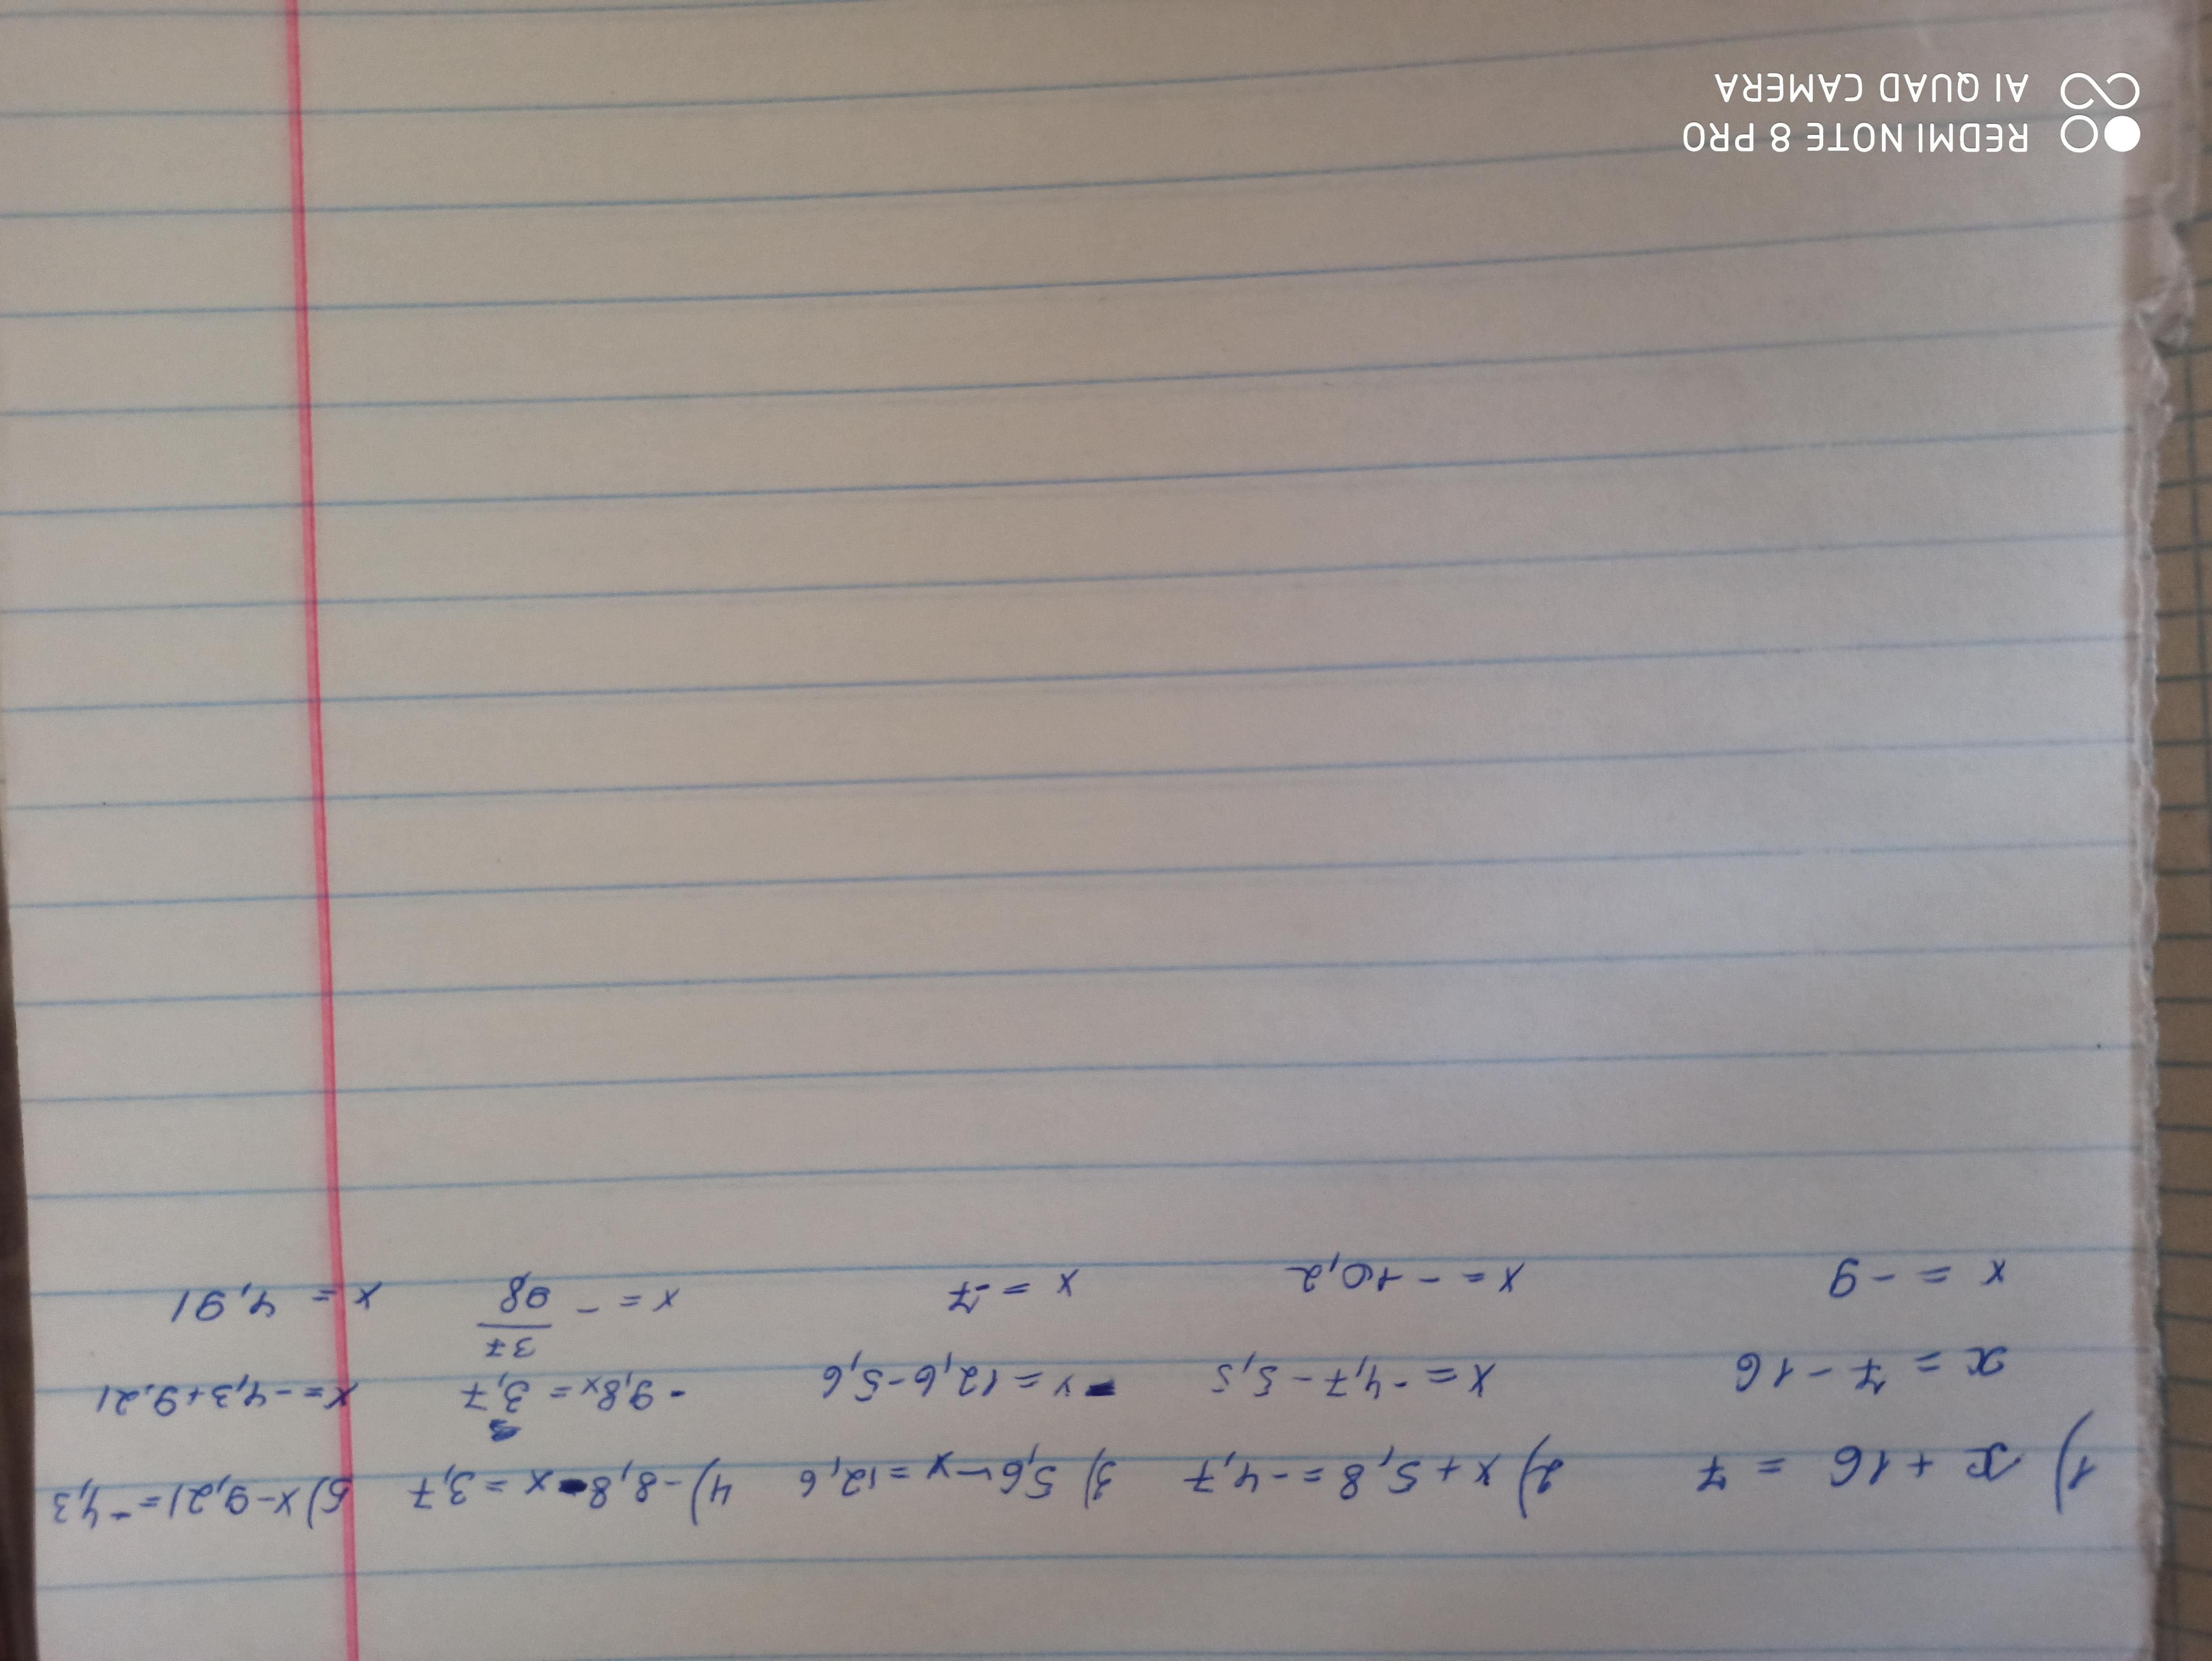 1) x + 16 = 7 2) x + 5,8 = -4,7 3) 5,6 - x = 12,6 4) -8,8 - x = 3,7 5) x - 9,21 = -4,3
x = 7 - 16 x = -4,7 - 5,5 -x = 12,6 - 5,6 -9,8x = 3,7 x = -4,3 + 9,21
x = -9 x = -10,2 x = -7 x = - 37/98 x = 4,91
REDMI NOTE 8 PRO
AI QUAD CAMERA